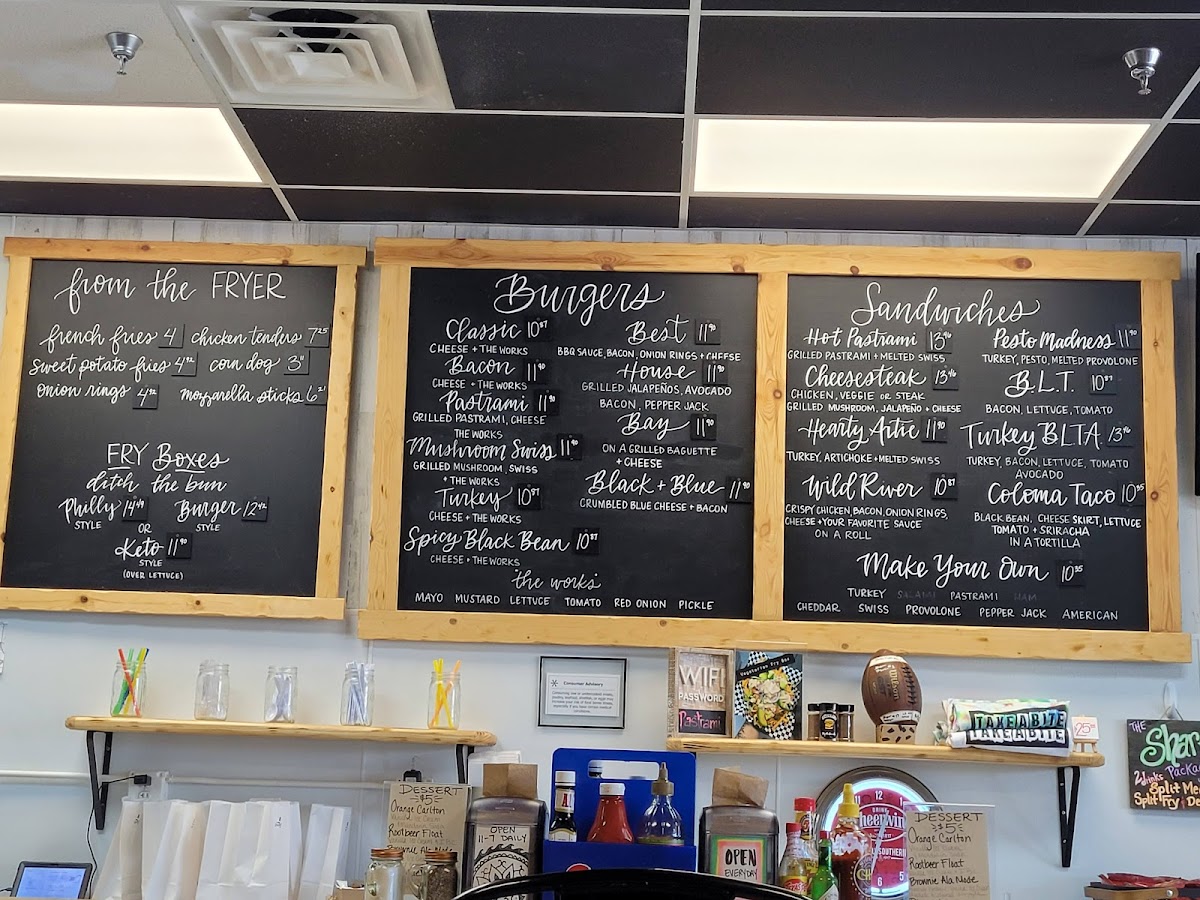 from the FRYER
french fries 4
chicken tenders 7 25
sweet potato fries 4 92
corn dog 3 11
onion rings 4 92
mozzarella sticks 6 21
FRY Boxes
ditch the bun
Philly 14 49
STYLE
OR
Burger 12 42
STYLE
Keto 11 90
STYLE
(OVER LETTUCE)
Burgers
Classic 10 87
CHEESE + THE WORKS
Bacon 11 90
CHEESE + THE WORKS
Pastrami 11 90
GRILLED PASTRAMI, CHEESE
THE WORKS
Mushroom Swiss 11 90
GRILLED MUSHROOM, SWISS
+ THE WORKS
Turkey 10 87
CHEESE + THE WORKS
Spicy Black Bean 10 87
CHEESE + THE WORKS
Best 11 90
BBQ SAUCE, BACON, ONION RINGS + CHEESE
House 11 90
GRILLED JALAPEÑOS, AVOCADO
BACON, PEPPER JACK
Bay 11 90
ON A GRILLED BAGUETTE
+ CHEESE
Black + Blue 11 90
CRUMBLED BLUE CHEESE + BACON
the works
MAYO MUSTARD LETTUCE TOMATO RED ONION PICKLE
Sandwiches
Hot Pastrami 13 46
GRILLED PASTRAMI + MELTED SWISS
Cheesesteak 13 46
CHICKEN, VEGGIE OR STEAK
GRILLED MUSHROOM, JALAPEÑO + CHEESE
Hearty Artie 11 90
TURKEY, ARTICHOKE + MELTED SWISS
Wild River 10 87
CRISPY CHICKEN, BACON, ONION RINGS,
CHEESE + YOUR FAVORITE SAUCE
ON A ROLL
Pesto Madness 11 90
TURKEY, PESTO, MELTED PROVOLONE
B.L.T. 10 87
BACON, LETTUCE, TOMATO
Turkey BLTA 13 46
TURKEY, BACON, LETTUCE, TOMATO
AVOCADO
Coloma Taco 10 35
BLACK BEAN, CHEESE SKIRT, LETTUCE
TOMATO + SRIRACHA
IN A TORTILLA
Make Your Own 10 35
TURKEY SALAMI PASTRAMI HAM
CHEDDAR SWISS PROVOLONE PEPPER JACK AMERICAN
Consumer Advisory
WIFI
PASSWORD
Pastrami
Vegetarian Fry Box
TAKE A BITE
25
THE
Shar
2 Drinks
Split Me
Split Fry
DESSERT
$5
Orange Carlton
Rootbeer Float
Brownie Ala Mode
OPEN
11-7 DAILY
OPEN
EVERYDAY
12
DRINK
Cheerwine
6
DESSERT
$5
Orange Carlton
Rootbeer Float
Brownie Ala Mode